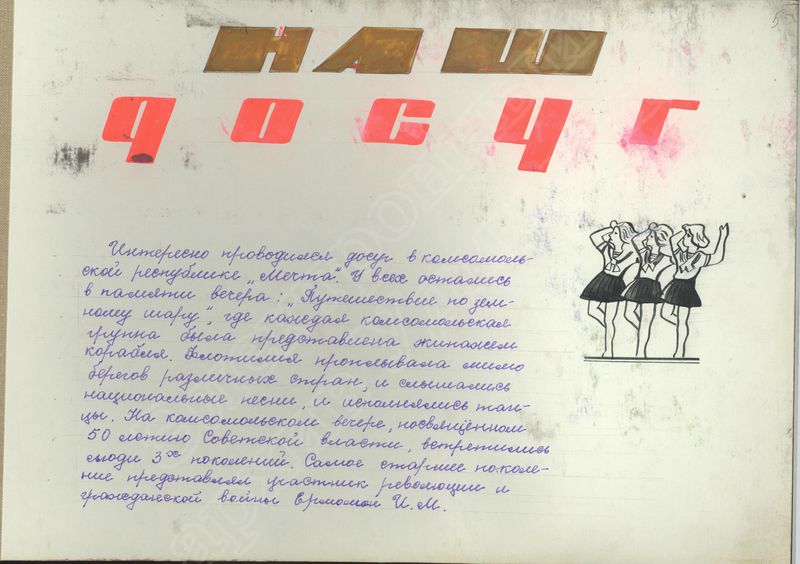 5
НАШ
ДОСУГ
Интересно проводился досуг в комсомоль-
ской республике „Мечта". У всех остались
в памяти вечера: „Путешествие по зем-
ному шару", где каждая комсомольская
группа была представлена экипажем
корабля. Флотилия проплывала мимо
берегов различных стран, и слышались
национальные песни, и исполнялись тан-
цы. На комсомольском вечере, посвящённом
50 летию Советской власти, встретились
люди 3х поколений. Самое старшее поколе-
ние представлял участник революции и
гражданской войны Ермолой И.М.